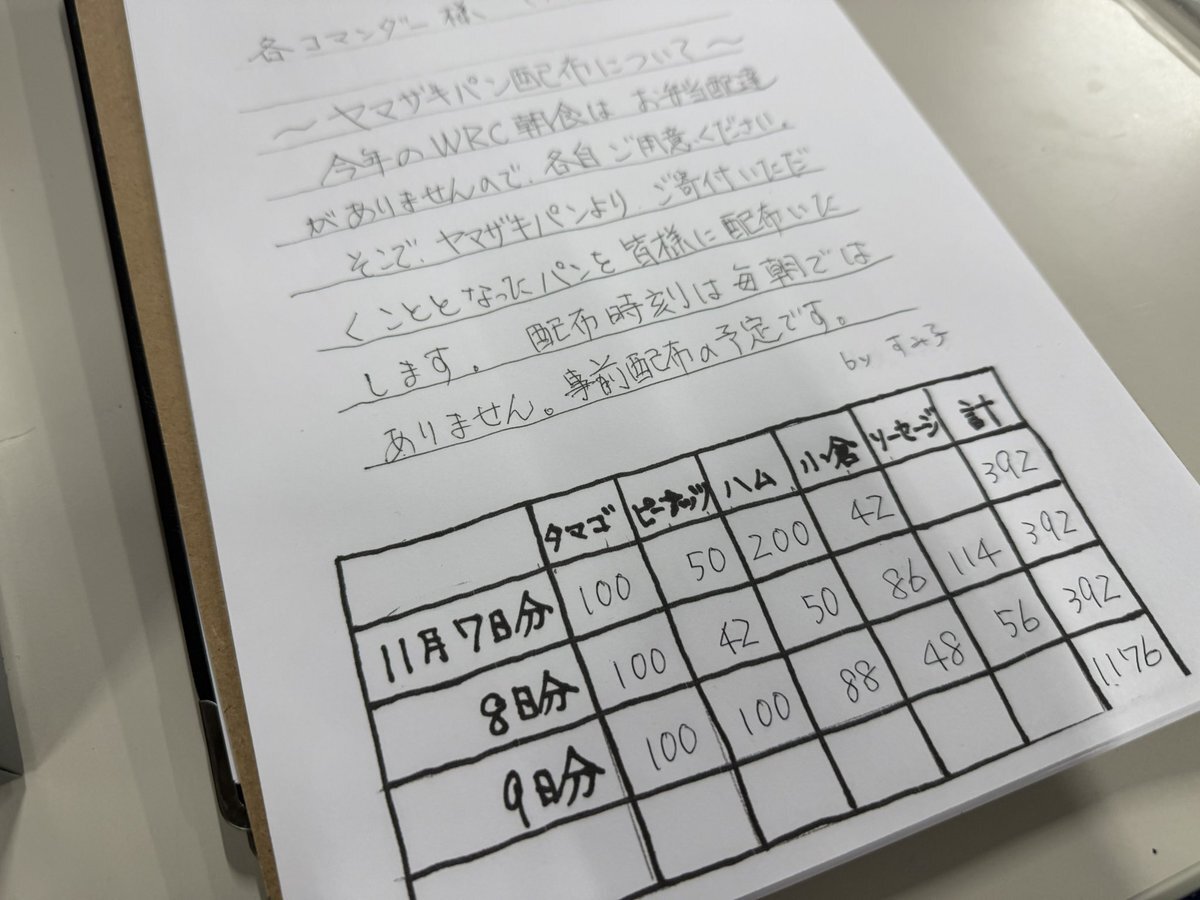 各コマンダー様、
～ヤマザキパン配布について～
今年のWRC朝食は お弁当配達
がありませんので、各自ご用意ください。
そこで、ヤマザキパンより ご寄付いただ
くこととなったパンを皆様に配布いた
します。 配布時刻は毎朝では
ありません。事前配布の予定です。
by すみ子
タマゴ ピーナッツ ハム 小倉 ソーセージ 計
11月7日分 100 50 200 42 392
8日分 100 42 50 86 114 392
9日分 100 100 88 48 56 392
1,176